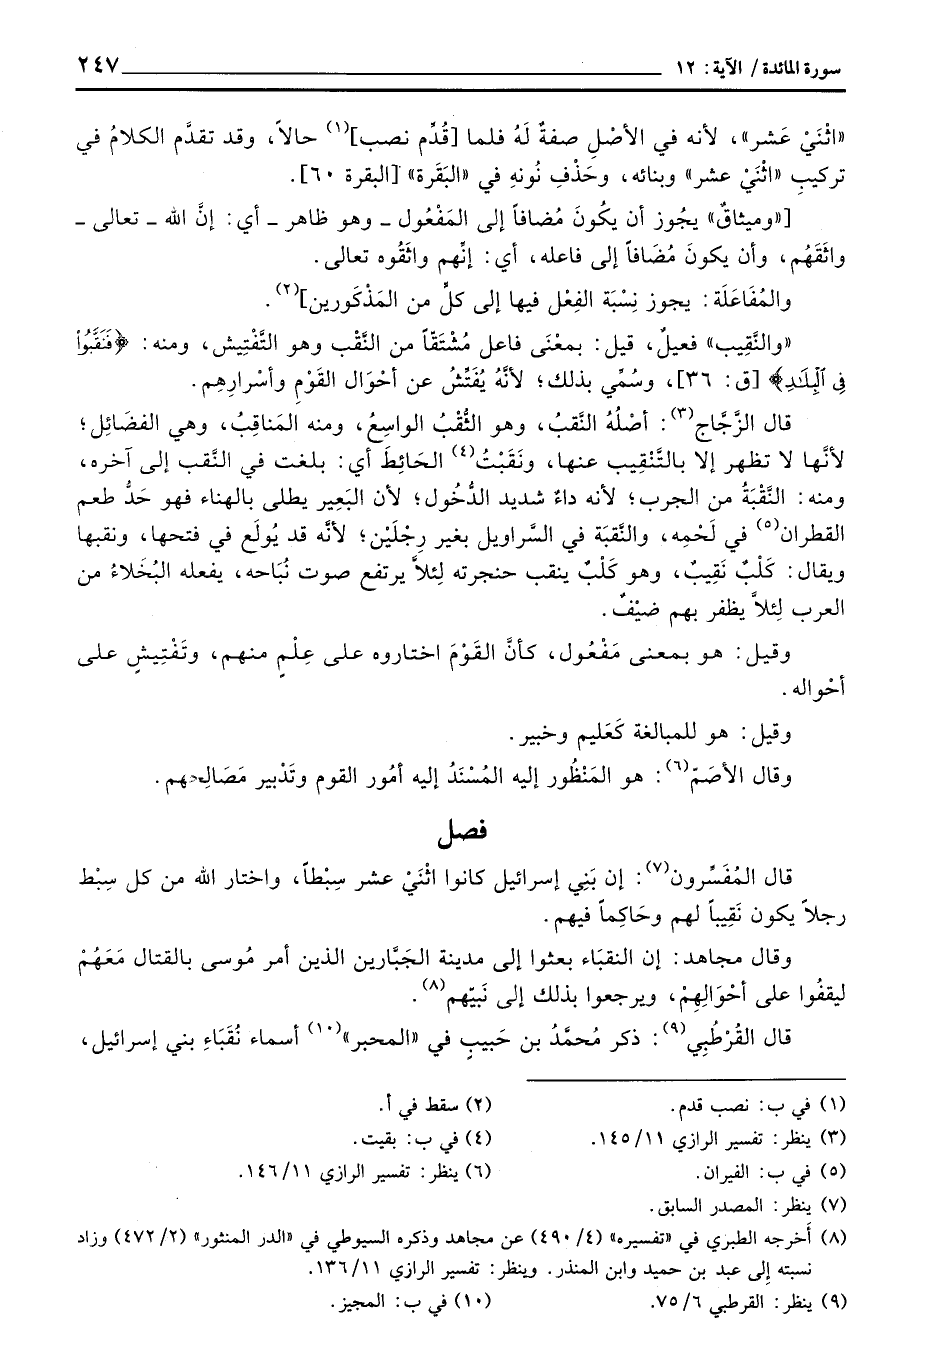 سورة المائدة/ الآية: ١٢ ٢٤٧
«اثْنَيْ عَشر»، لأنه في الأصْلِ صفةٌ لَهُ فلما [قُدِّم نصب](١) حالاً، وقد تقدَّم الكلامُ في
تركيبِ «اثْنَيْ عشر» وبنائه، وحَذْفِ نُونهِ في «البَقَرة» [البقرة ٦٠].
[«وميثاقٌ» يجُوز أن يكُونَ مُضافاً إلى المَفْعُول ـ وهو ظاهر ـ أي: إنَّ الله ـ تعالى ـ
واثَقَهُم، وأن يكونَ مُضَافاً إلى فاعله، أي: إنَّهم واثَقُوه تعالى.
والمُفَاعَلَة: يجوز نِسْبَة الفِعْل فيها إلى كلٍّ من المَذْكَورين](٢).
«والنَّقِيب» فعيلٌ، قيل: بمعْنَى فاعل مُشْتَقّاً من النَّقْب وهو التَّفْتِيش، ومنه: ﴿فَنَقَّبُواْ
فِي ٱلْبِلَٰدِ﴾ [ق: ٣٦]، وسُمِّي بذلك؛ لأنَّهُ يُفَتِّشُ عن أحْوَال القَوْمِ وأسْرارِهِم.
قال الزَّجَّاج(٣): أصْلُهُ النَّقبُ، وهو الثُّقْبُ الواسِعُ، ومنه المَناقِبُ، وهي الفضَائِل؛
لأنَّها لا تظهر إلا بالتَّنْقِيب عنها، ونَقَبْتُ(٤) الحَائِطَ أي: بلغت في النَّقب إلى آخره،
ومنه: النَّقْبَةُ من الجرب؛ لأنه داءٌ شديد الدُّخُول؛ لأن البَعِير يطلى بالهناء فهو حَدُّ طعم
القطران(٥) في لَحْمِه، والنَّقبَة في السَّراويل بغير رِجْلَيْن؛ لأنَّه قد يُولَع في فتحها، ونقبها
ويقال: كَلْبٌ نَقِيبٌ، وهو كَلْبٌ ينقب حنجرته لِئلاَّ يرتفع صوت نُبَاحه، يفعله البُخَلاءُ من
العرب لِئلاَّ يظفر بهم ضيْفٌ.
وقيل: هو بمعنى مَفْعُول، كأنَّ القَوْمَ اختاروه على عِلْمٍ منهم، وتَفْتِيشٍ على
أحْواله.
وقيل: هو للمبالغة كَعَليم وخبير.
وقال الأصَمّ(٦): هو المَنْظُور إليه المُسْنَدُ إليه أمُور القوم وتَدْبير مَصَالِحهم.
فصل
قال المُفَسِّرون(٧): إن بَنِي إسرائيل كانوا اثْنَيْ عشر سِبْطاً، واختار الله من كل سِبْط
رجلاً يكون نَقِيباً لهم وحَاكِماً فيهم.
وقال مجاهد: إن النقبَاء بعثوا إلى مدينة الجَبَّارين الذين أمر مُوسى بالقتال مَعَهُمْ
ليقفُوا على أحْوَالِهِمْ، ويرجعوا بذلك إلى نَبيّهم(٨).
قال القُرْطُبِي(٩): ذكر مُحمَّدُ بن حَبيبٍ في «المحبر»(١٠) أسماء نُقَبَاءِ بني إسرائيل،
(١) في ب: نصب قدم. (٢) سقط في أ.
(٣) ينظر: تفسير الرازي ١١/ ١٤٥. (٤) في ب: بقيت.
(٥) في ب: الفيران. (٦) ينظر: تفسير الرازي ١١/ ١٤٦.
(٧) ينظر: المصدر السابق.
(٨) أخرجه الطبري في «تفسيره» (٤/ ٤٩٠) عن مجاهد وذكره السيوطي في «الدر المنثور» (٢/ ٤٧٢) وزاد
نسبته إلى عبد بن حميد وابن المنذر. وينظر: تفسير الرازي ١١/ ١٣٦.
(٩) ينظر: القرطبي ٦/ ٧٥. (١٠) في ب: المجيز.